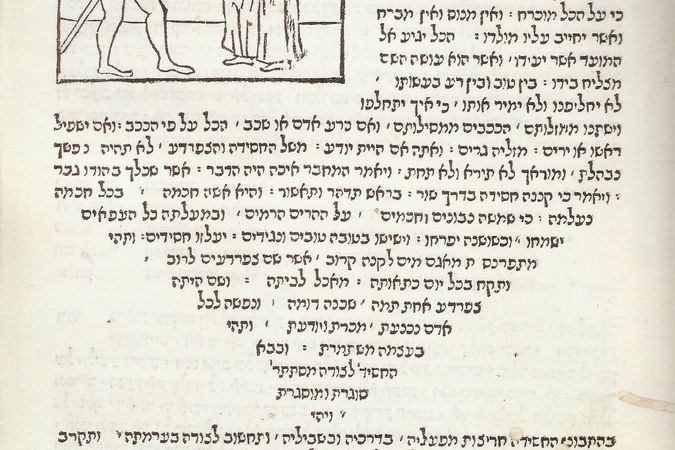 כי על הכל מוכרח : ואין מנוס ואין מברח
ואשר יחייב עליו מולדו : הכל יגיע אל
המועד אשר יעידו ׳ ואשר הוא עושה השם
מצליח בידו : בין טוב ובין רע בעשותו ׳
לא יחליפנו ולא ימיר אותו ׳ כי איך יתחלפו
וישתנו ממזלותם ׳ הככבים ממסילותם ׳ ואם כרע אדם או שכב ׳ הכל על פי הככב : ואם ישפיל
ראשו או ירים : מזליה גרים : ואתה אם היית יודע ׳ משל החסידה והצפרדע ׳ לא תהיה נפשך
נבהלת ׳ ומוראך לא תירא ולא תחת : ויאמר המחבר איכה היה הדבר : אשר שכלך בהודו גבר
: ויאמר כי קננה חסידה בדרך שור : בראש תדהר ותאשור : והיא אשה חכמה ׳ בכל חכמה
נעלמה : כי שמשה נבונים וחכמים ׳ על ההרים הרמים ׳ ובמעלתה כל העפאים
ישמחו ׳ ובשושנה יפרחו : וישישו בטובה טובים ונגידים : יעלזו חסידים : ותהי
מתפרנס ת מאגם מים לקנה קרוב ׳ אשר שם צפרדעים לרוב ׳
ותקח בכל יום כתאותה : מאכל לביתה : ושם היתה
צפרדע אחת תמה ׳ שכנה דומה ׳ ונפשה לכל
אדם נכנעת ׳ מכרת ויודעת ׳ ותהי
בעצמה משתמרת : ובבא
החסיד׳ לצודה מסתתר׳
סוגרת ומוסגרת
׳ ויהי
בהתבונן החסידה חריצות מפעליה ׳ בדרכיה ובשביליה ׳ ותחשוב לצודה בערמתה ׳ ותקרב